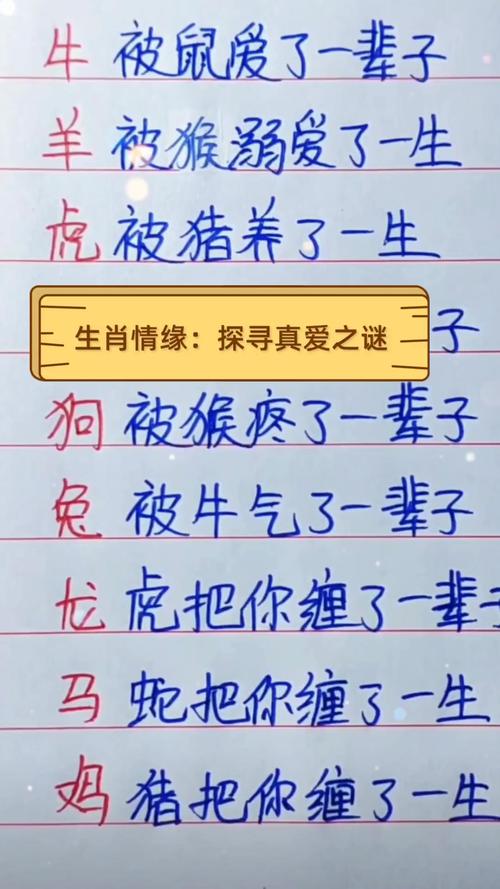 牛 被鼠爱了一辈子
羊 被猴溺爱了一生
虎 被猪养了一生
生肖情缘：探寻真爱之谜
子
狗 被猴疼了一辈子
兔 被牛气了一辈子
龙 虎把你缠了一辈子
马 蛇把你缠了一生
鸡 猪把你缠了一生